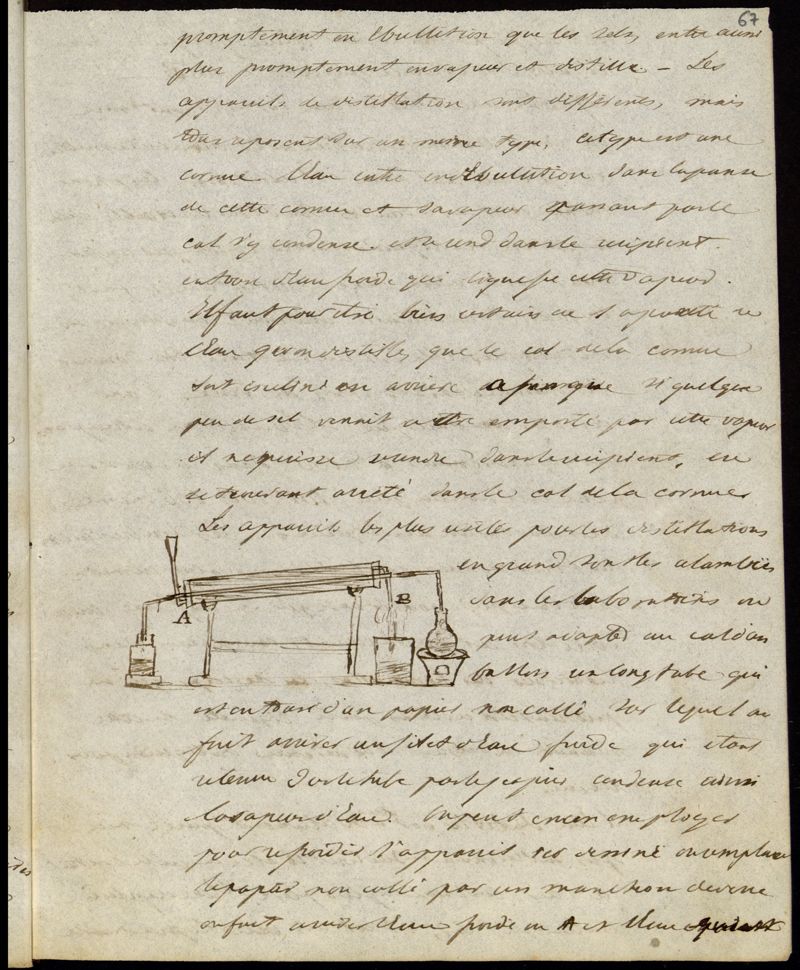 67
promptement en Ebullition que les sels, entre aussi
plus promptement en vapeur et distille - Les
appareils de distillation sont différents, mais
tous reposent sur un même type, ce type est une
cornue L'eau entre en Ebullition dans la panse
de cette cornue et sa vapeur passant par le
col s'y condense et se rend dans le récipient
entouré d'eau froide qui liquéfie cette vapeur.
Il faut pour être bien certain de la pureté de
l'Eau qu'on distille, que le col de la cornue
soit incliné en arrière afin que si quelque
peu de sel venait à être emporté par cette vapeur
il ne puisse se rendre dans le récipient, en
se trouvant arrêté dans le col de la cornue
Les appareils les plus usités pour les distillations
en grand sont les alambics
dans les laboratoires on
peut adapter au col d'un
ballon un long tube qui
est entouré d'un papier non collé sur lequel on
fait arriver un filet d'Eau froide qui étant
retenue sur le tube par le papier condense ainsi
la vapeur d'Eau. On peut encore employer
pour refroidir l'appareil ici dessiné on remplace
le papier non collé par un manchon de verre
on fait arriver l'Eau froide en A et l'Eau
A
B